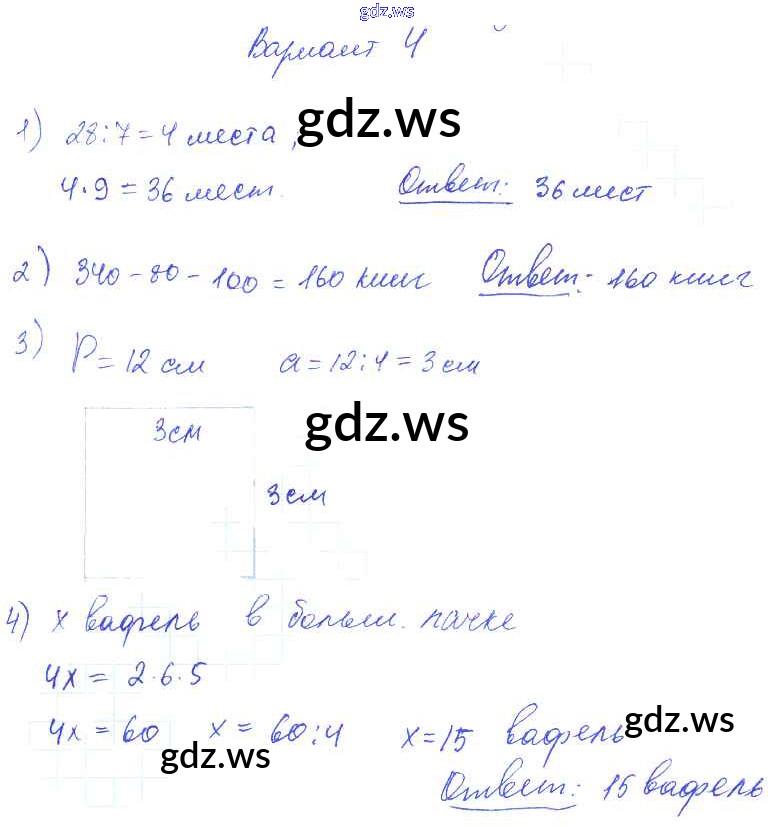 gdz.ws
Вариант 4
1) 28:7=4 места;
gdz.ws
4·9=36 мест. Ответ: 36 мест
2) 340-80-100=160 книг Ответ: 160 книг
3) P=12 см a=12:4=3 см
3см
gdz.ws
3см
4) x вафель в больш. пачке
4x = 2·6·5
4x = 60 x = 60:4 x=15 вафель
gdz.ws
gdz.ws
Ответ: 15 вафель